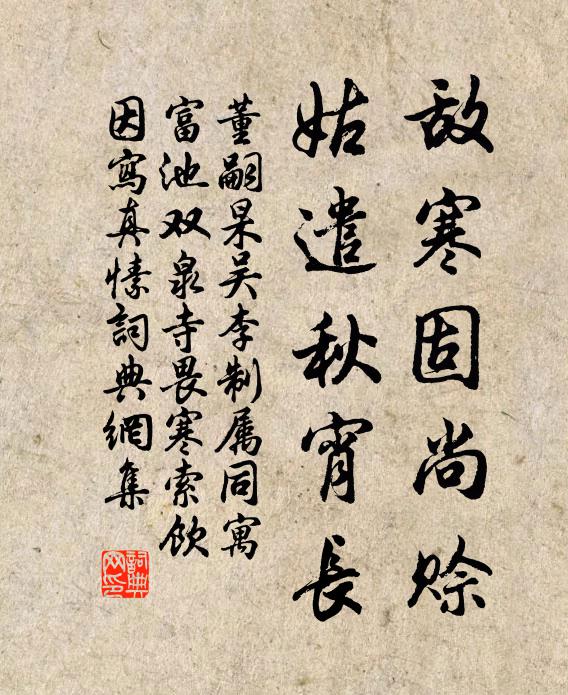 敌寒固尚赊
姑遣秋宵長
董嗣杲吴李制属同寓
富池双泉寺畏寒索飲
因寫真愫詞典網集
詞典
网印